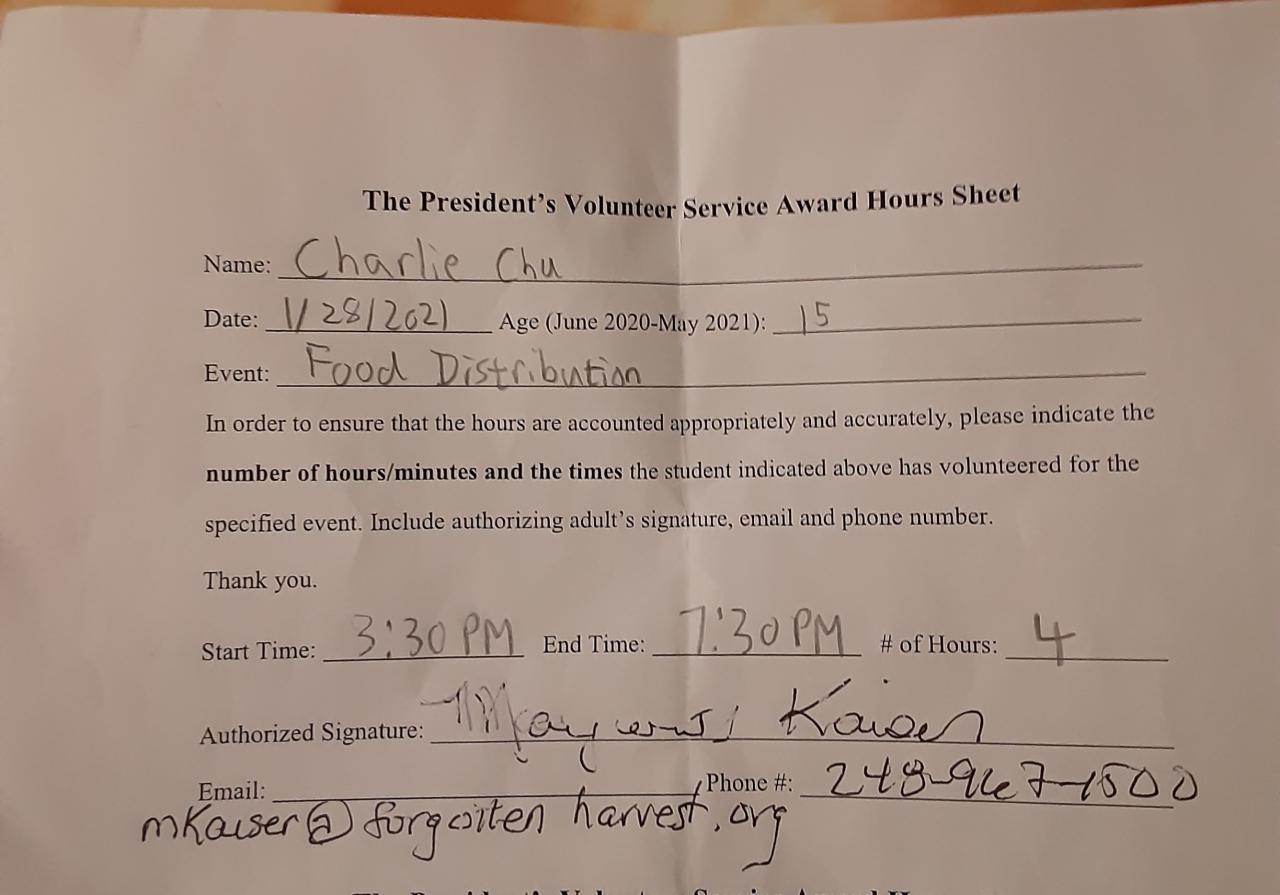 The President's Volunteer Service Award Hours Sheet
Name: Charlie Chu
Date: 1/28/2021 Age (June 2020-May 2021): 15
Event: Food Distribution
In order to ensure that the hours are accounted appropriately and accurately, please indicate the
number of hours/minutes and the times the student indicated above has volunteered for the
specified event. Include authorizing adult's signature, email and phone number.
Thank you.
Start Time: 3:30 PM End Time: 7:30 PM # of Hours: 4
Authorized Signature: Kaiser
Email: Phone #: 248-967-1500
mKaiser@forgotten harvest.org